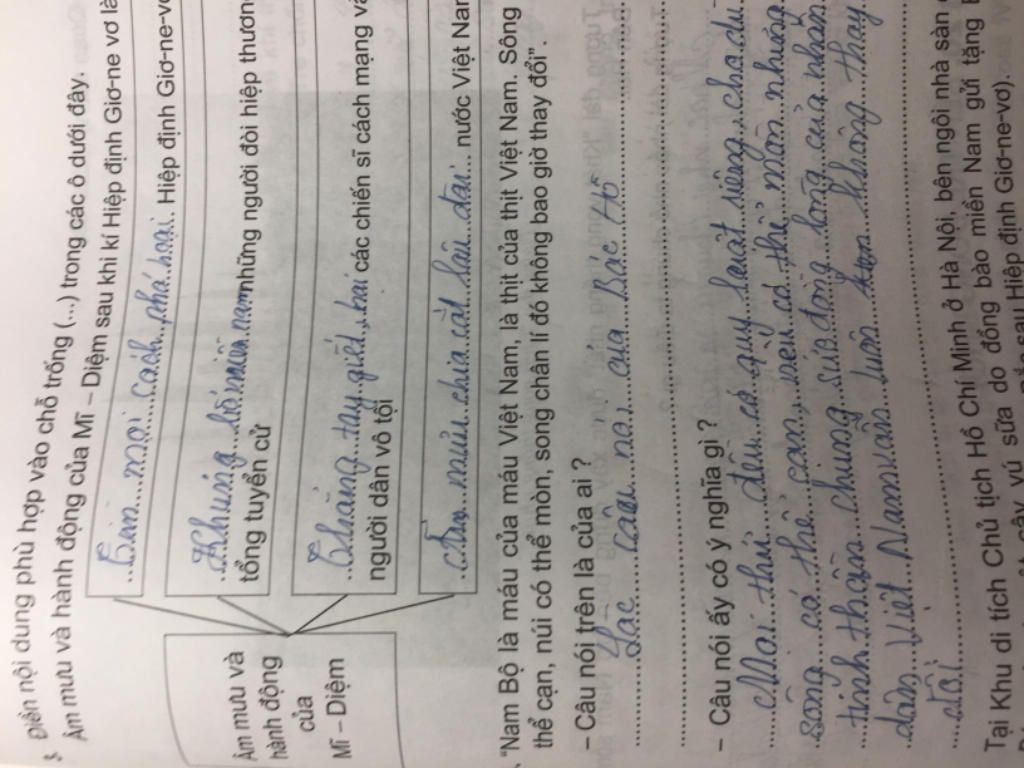 3. Điền nội dung phù hợp vào chỗ trống (...) trong các ô dưới đây.
Âm mưu và hành động của Mĩ – Diệm sau khi kí Hiệp định Giơ-ne-vơ là
Âm mưu và
hành động
của
Mĩ – Diệm
Tìm mọi cách phá hoại Hiệp định Giơ-ne-vơ
Khủng bố miền nam những người đòi hiệp thương
tổng tuyển cử
Thẳng tay giết hại các chiến sĩ cách mạng và
người dân vô tội
Âm mưu chia cắt lâu dài nước Việt Nam
"Nam Bộ là máu của máu Việt Nam, là thịt của thịt Việt Nam. Sông
thể cạn, núi có thể mòn, song chân lí đó không bao giờ thay đổi".
– Câu nói trên là của ai ?
câu nói của Bác Hồ
– Câu nói ấy có ý nghĩa gì ?
Mọi thứ đều có quy luật riêng cha du
sông có thể cạn, núi có thể mòn nhưng
tinh thần chung sức đồng lòng của nhân
dân Việt Nam vẫn luôn không thay
đổi
Tại Khu di tích Chủ tịch Hồ Chí Minh ở Hà Nội, bên ngôi nhà sàn
cây vú sữa do đồng bào miền Nam gửi tặng
sau Hiệp định Giơ-ne-vơ).